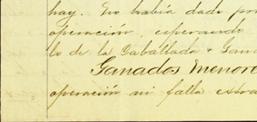 hay. No había dado por
operación, esperando
lo de la Caballada y Gana
Ganados Menore
operación ni falta